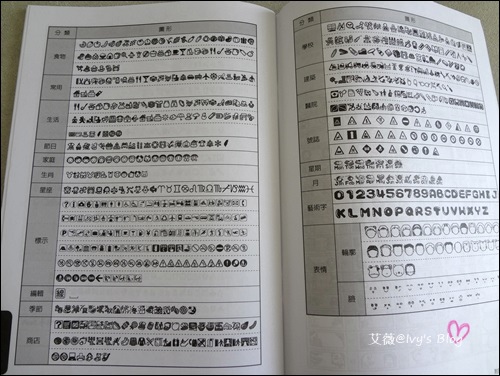 分類 圖形
食物
常用
生活
節日
家庭
生肖
星座
標示
編輯
季節
商店
分類 圖形
學校
建築
醫院
號誌
星期
月
藝術字 0123456789ABCDEFGHIJ
KLMNOPQRSTUVWXYZ
表情
輪廓
臉
艾薇@Ivy's Blog